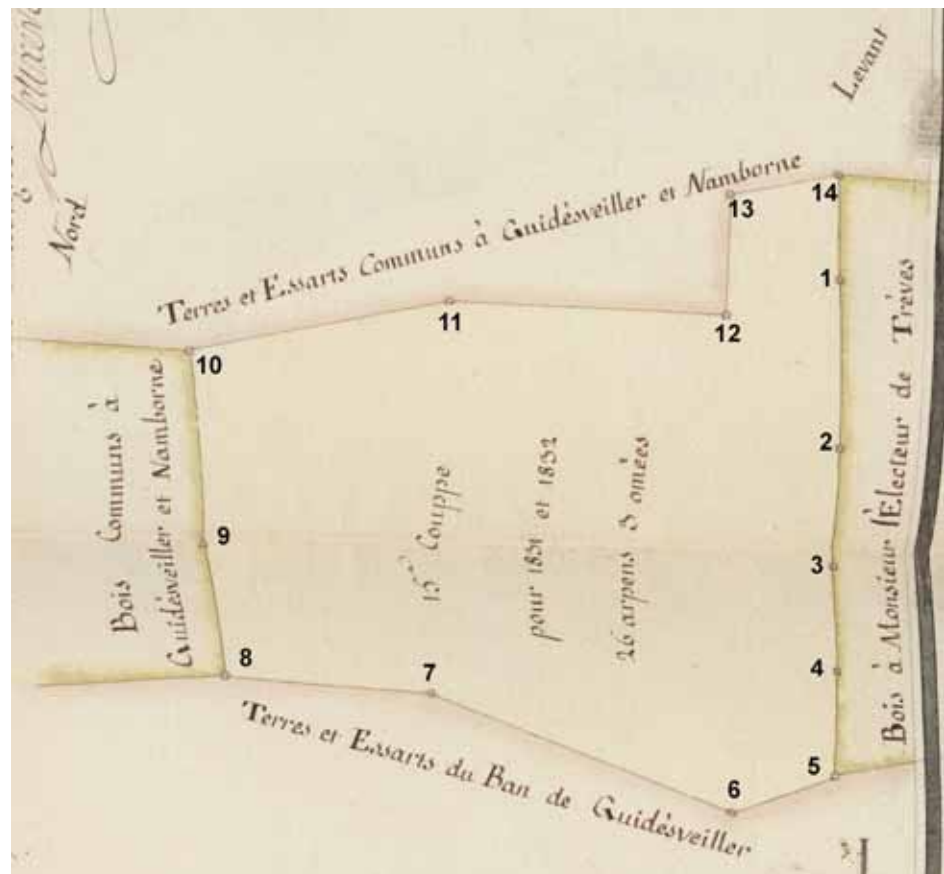 Nord
Levant
Terres et Essarts Communs à Guidésveiller et Namborne
13
14
1
11
12
10
2
Bois Communs à
Guidésveiller et Namborne
9
15 Couppe
pour 1831 et 1832
26 arpens 3 omées
3
Bois à Monsieur l'Électeur de Trèves
4
8
7
5
6
Terres et Essarts du Ban de Guidésveiller